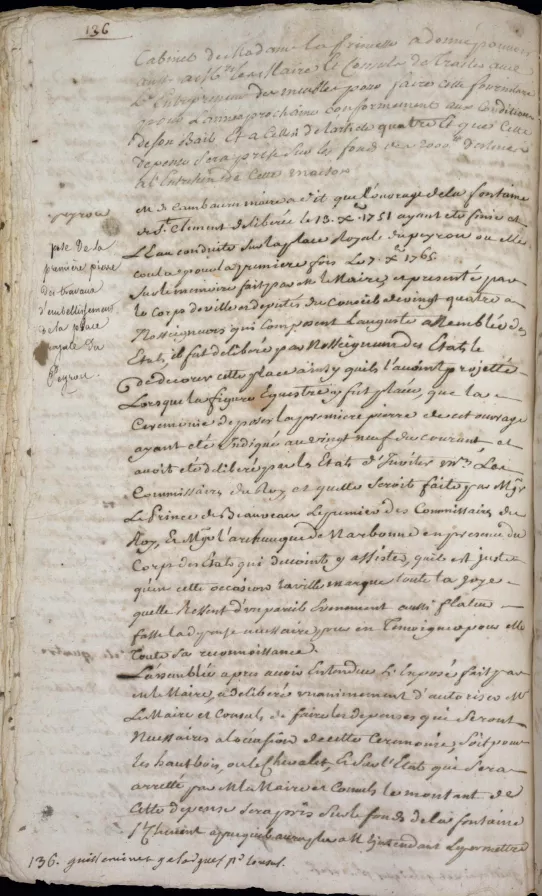 136
Cabinet de Madame la Princesse a donné pouvoir
le Maire et Consuls de traiter avec
l'Entrepreneur des meubles pour faire cette fourniture
pour l'année prochaine conformement aux Conditions
de son Bail Et a Celles de l'article quatre Et que Cette
depense sera prise Sur le fond des 2000# destinés
a l'Entretien de Cette maison
peyrou
pose de la
premiere pierre
des travaux
d'embellissement
de la place
royale du
Peyrou.
M. de Cambacerés maire a dit que l'ouvrage de la fontaine
de St. Clement deliberée le 13. xbre 1751 ayant eté finie et
L'Eau conduite sur la place Royale du peyrou ou elle
coula pour la premiere fois Le 7. xbre 1765
Sur le memoire fait par M. le Maire, et presenté par
le corps de ville et deputés du Conseil de vingt quatre a
Nosseigneurs qui composent l'auguste assemblée des
Etats, il fut deliberé par Nosseigneurs des Etats de
decorer cette place ainsy qu'ils l'avoint projetté
Lorsque la figure Equestre y fut placée, que la
Ceremonie de poser la premiere pierre de cet ouvrage
ayant eté Indiquée au vingt neuf du courant et
avoit eté deliberé par les Etats d'Inviter Mrs. Les
Commissaires du Roy, et quelle seroit faite par Mgr
Le Prince de Beauveau Le premier des Commissaires du
Roy, & Mgr l'archeveque de Narbonne en presence du
Corps des Etats qui doivent y assister, qu'il est juste
qu'en cette occasion la ville marque toute la joye
quelle Ressent d'un pareil Evenement aussi flateur
fasse la depense necessaire, pour en Temoigner pour elle
Toute sa reconnoissance.
L'assemblée apres avoir Entendu L'Exposé fait par
M. le Maire, a deliberé unanimement d'autoriser Mr
Le Maire et Consuls, de faire les depenses qui Seront
Necessaires a l'occasion de cette Ceremonie, Soit pour
Les hautbois, ou le Chevalet, & Sur l'Etat qui Sera
arretté par M. le Maire et Consuls le montant de
Cette depense sera pris Sur le fonds de la fontaine
St. Clement apres que Mr l'Intendant L'aura permettre
136. guilleminet